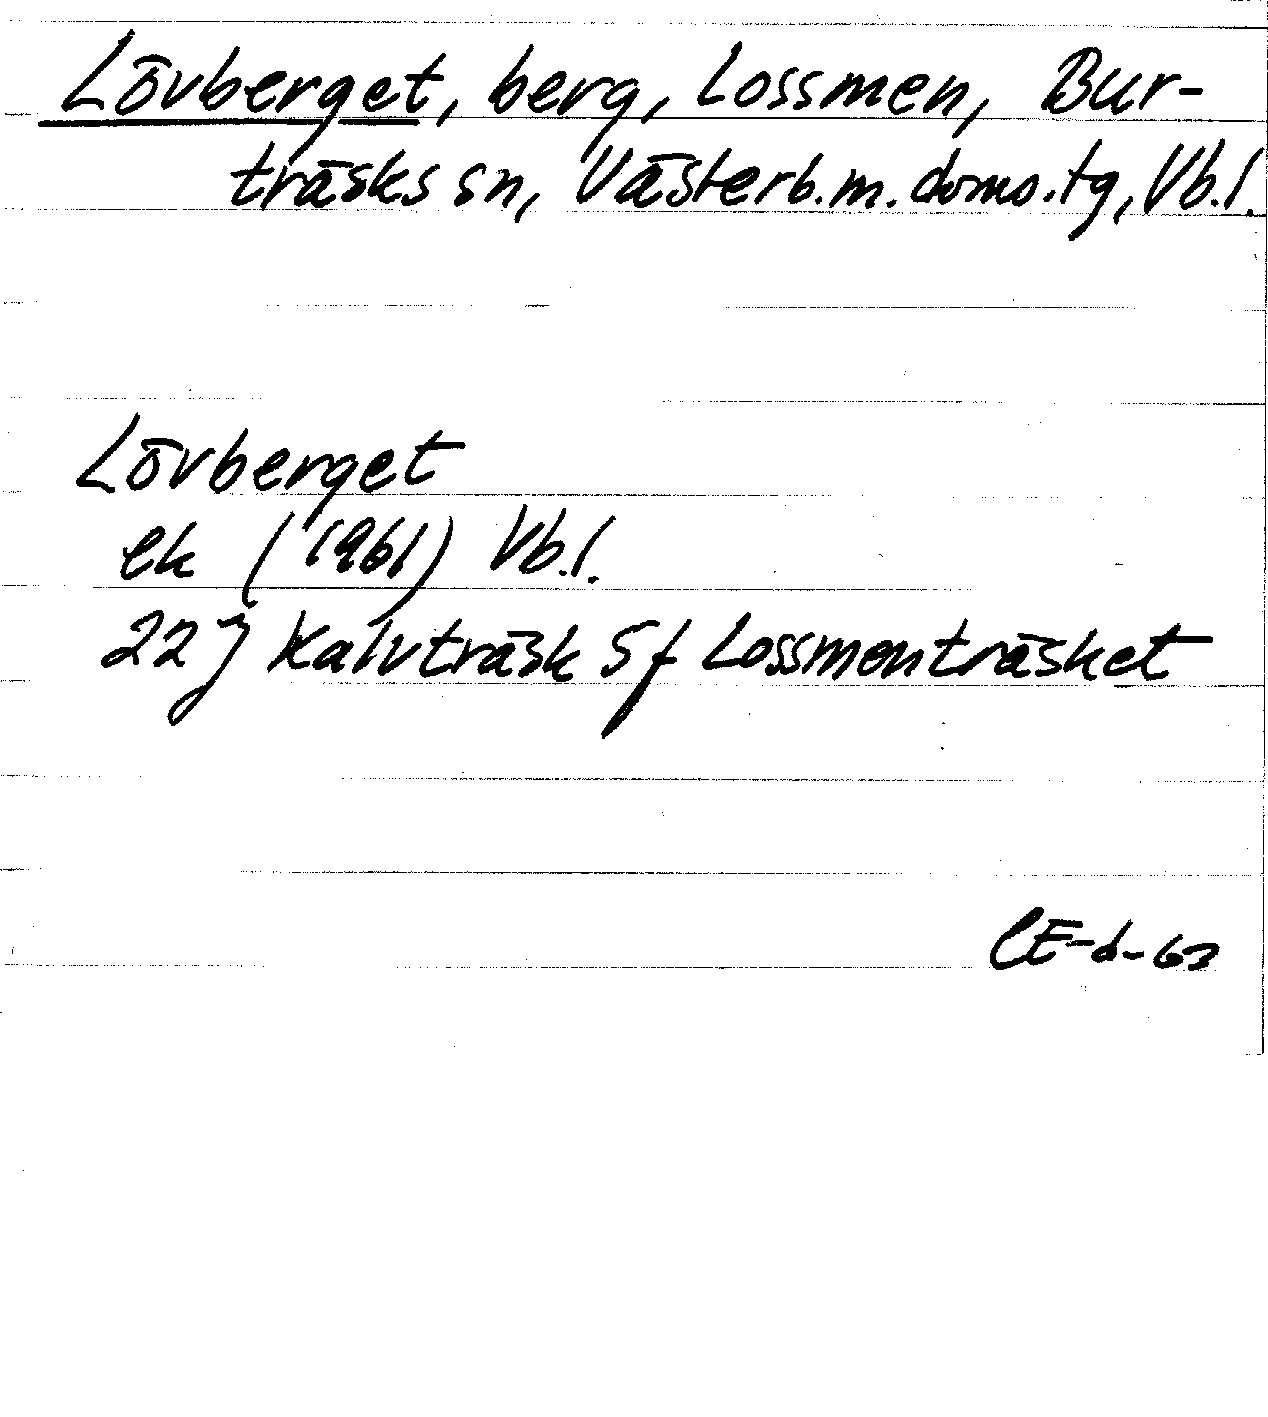 Lövberget, berg, Lossmen, Bur-
träsks sn, Västerb.m.doms.tg, Vb.l.
Lövberget
ek (1961) Vb.l.
22 J Kalvträsk Sf Lossmenträsket
CE-d-63